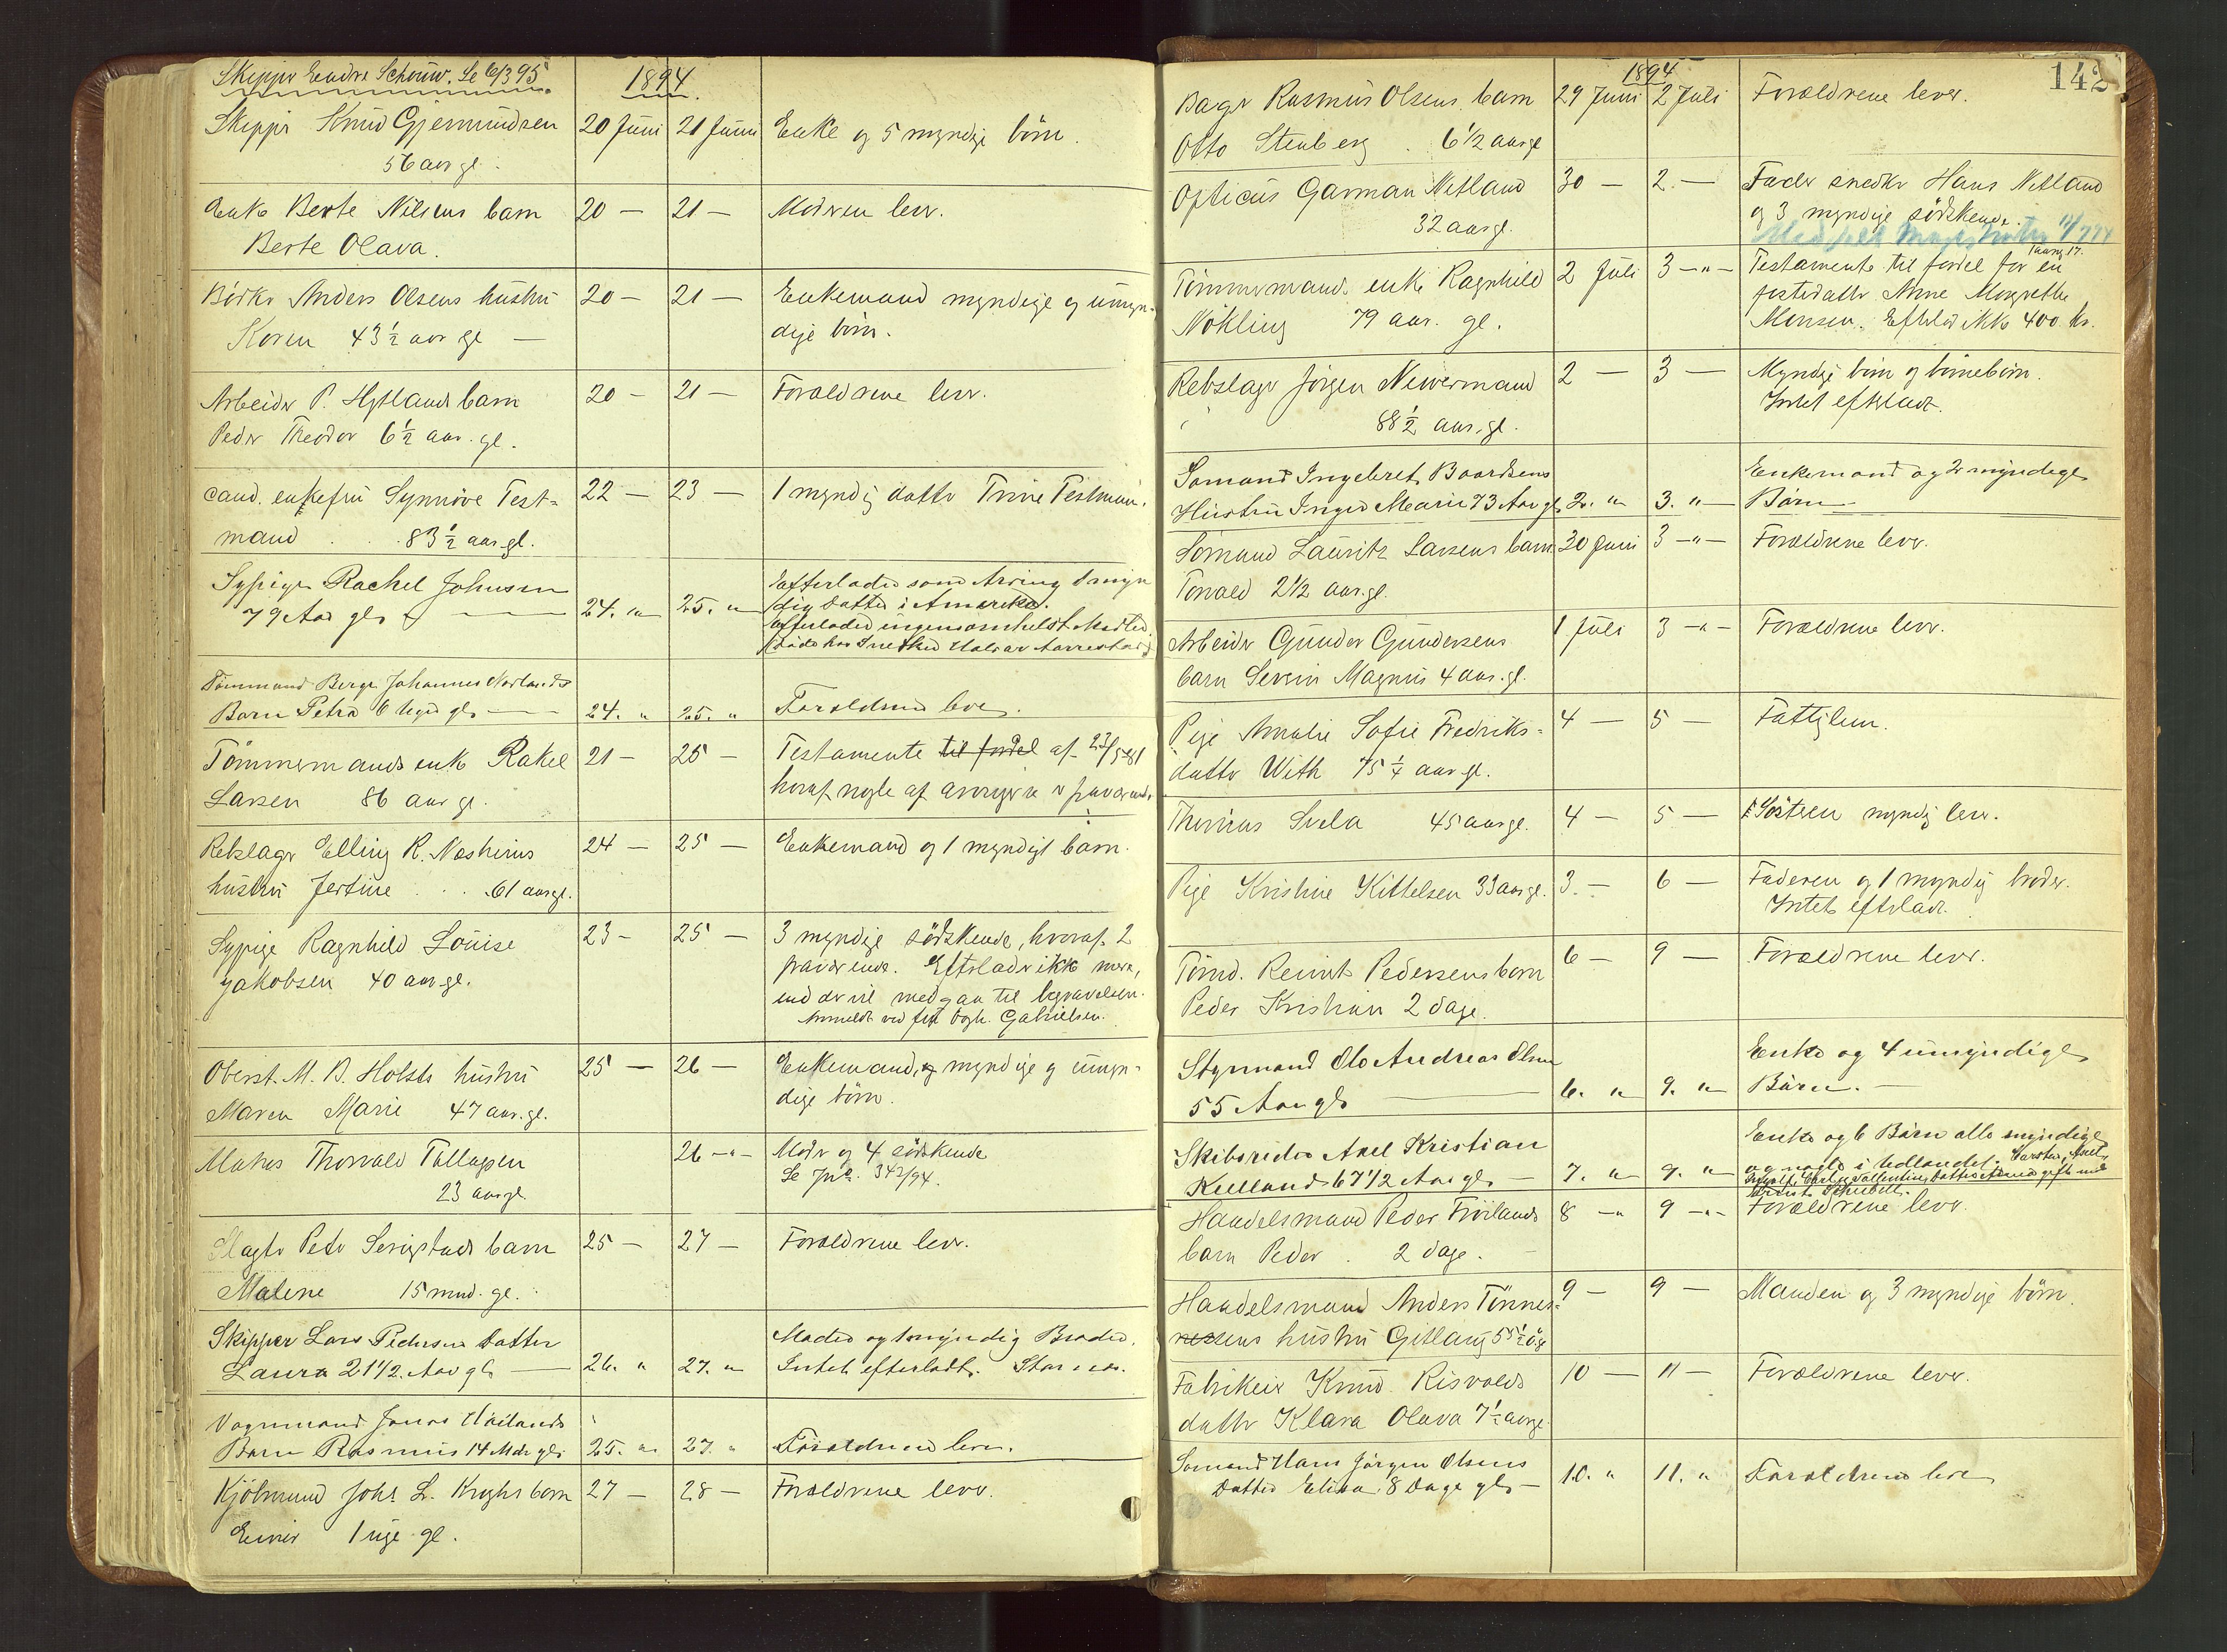 Skipper Endre Schouw. Se 6/3 95
1894.
Skippr Knud Gjermundsen 20 Juni 21 Juni Enke og 5 myndige börn.
56 aar gl.
Enke Berte Nilsens barn 20 — 21 — Moderen lever.
Berte Olava.
Bödkr Anders Olsens hustru 20 — 21 — Enkemand myndige og umyn-
Karen 43 ½ aar gl — dige börn.
Arbeider P. Hytlands barn 20 — 21 — Forældrene lever.
Peder Theodor 6 ½ aar. gl.
cand. enkefru Synnöve Test- 22 — 23 — 1 myndig datter Trine Testman.
mand 83 ½ aar gl.
Sypige Rachel Johnsen Efterlader som Arving 1 myn
79 Aar gl. — 24. " 25. " dig Datter i Amerika.
efterlader ingensomhelst Midler.
Tömmand Berge Johannes
Barn Petra 6 Uger gl. — 24. " 25. " Forældrene lever.
Tömmermands enke Rakel 21 — 25 — Testamente til fordel af 23/5 81
Larsen 86 aar gl. hvoraf nogle af arvingerne er fraværende.
Rebslager Elling R. Næsheims 24 — 25 — Enkemand og 1 myndigt barn.
hustru Jertine 61 aar gl.
Sypige Ragnhild Louise 23 — 25 — 3 myndige södskende, hvoraf 2
Jakobsen 40 aar gl. fraværende. Efterlader ikke mere,
end der vil medgaa til begravelsen.
Anmeldt ved frk Gabrielsen.
Oberst. M. B. Holsts hustru 25 — 26 — Enkemand, og myndige og umyn-
Maren Marie 47 aar. gl. dige börn.
Matros Thorvald Tallagsen 26 — " — Moder og 4 södskende
23 aar gl. Se Jno. 342/94.
Slagter Peter Serigstads barn 25 — 27 — Forældrene lever.
Malene 15 mnd. gl.
Skipper Lars Pedersens Datter Moder og 1 myndig Broder.
Laura 21 1/2. Aar gl. — 26. " 27. " Intet efterladt.
Vognmand Jonas Hailands
Barn Rasmus 14 Mdr gl. 25. " 27. " Forældrene lever.
Kjölmand Johs L. Kroghs barn 27 — 28 — Forældrene lever.
Einar 1 uge gl.
142
1894
Bager Rasmus Olsens barn 29 Juni 2 Juli Forældrene lever.
Otto Stenberg. 6 1/2 aar gl
Opticus Garman Netland 30 — 2 — Fader snedker Hans Netland
32 aar gl. og 3 myndige södskende.
Tömmermands enke Ragnhild 2 Juli 3 — " — Testamente til fordel for en
Nökling 79 aar. gl. fosterdatter Anne Margrethe
Monsen. Efterlod ikke 400 kr.
Rebslager Jörgen Newermand 2 — 3 — Myndige börn og börnebörn.
88 ½ aar. gl. Intet efterladt.
Sömand Ingebret Baardsens Enkemand og 2 myndige
Hustru Inger Marie 73 Aar gl. 2. " 3. " — Börn —
Sömand Lauritz Larsens barn 30 Juni 3 — " — Forældrene lever.
Torvald 2 1/2 aar. gl.
Arbeider Gunder Gundersens 1 Juli 3 — " — Forældrene lever.
barn Sevrin Magnus 4 aar. gl.
Pige Amalie Sofie Fredriks- 4 — 5 — Fattiglem.
datter With 75 ¼ aar gl.
Thomas Svela 45 aar gl. 4 — 5 — Söstren myndig lever.
Pige Kristine Kittelsen 33 aar gl. 3. — 6 — Faderen og 1 myndig broder.
Intet efterladt.
Tömd. Reinert Pedersens barn 6 — 9 — Forældrene lever.
Peder Kristian 2 dage.
Styrmand Ole Andreas Olsen Enke og 4 umyndige
55 Aar gl. — 6. " 9. " Börn. —
Skibsreder Axel Kristian Enke og 6 Börn alle myndige
Kielland 67 1/2 Aar gl. — 7. " 9. " og nogle i Udlandet.
Handelsmand Peder Tröilands 8 — " 9 — " — Forældrene lever.
barn Peder. 2 dage. —
Handelsmand Anders Tönnes- 9 — 9 — Manden og 3 myndige börn.
nessens hustru Gitlaug 55 ½ gl
Fabrikeier Knud Risvolds 10 — 11 — Forældrene lever.
datter Klara Olava 7 ½ aar gl.
Sömand Hans Jörgen Olsens
Datter Elisa. 8 Dage gl. — 10. " 11. " Forældrene lever